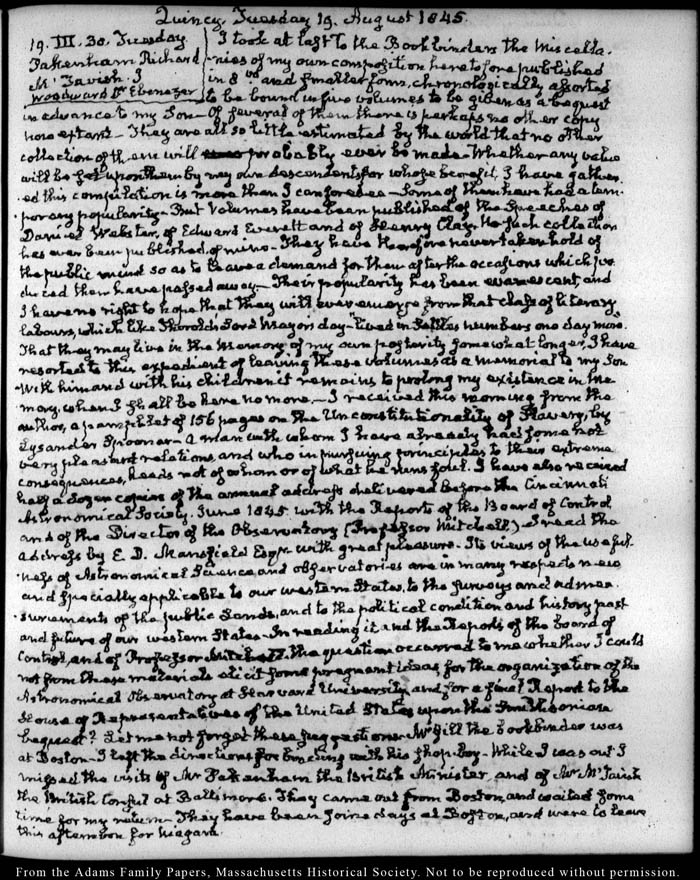 Quincy Tuesday 19. August 1845.
19. III. 30. Tuesday
Pakenham Richard
McTavish J
Woodward Dr. Ebenezer
I took at last to the Bookbinders the Miscella-
nies of my own composition heretofore published
in 8vo. and smaller form, chronologically assorted
to be bound in five volumes to be given as a bequest
in advance to my Son. Of several of them there is perhaps no other copy
now extant. They are all so little estimated by the world that no other
collection of them will probably ever be made. Whether any value
will be set upon them by my own descendents for whose benefit, I have gather-
ed this compilation is more than I can foresee. Some of them have had a tem-
porary popularity. But Volumes have been published of the Speeches of
Daniel Webster, of Edward Everett and of Henry Clay. No such collection
has ever been published, of mine. They have therefore never taken hold of
the public mind so as to leave a demand for them after the occasions which pro-
duced them have passed away. Their popularity has been evanescent, and
I have no right to hope that they will ever emerge from that class of literary
labours, which like Thorold's Lord Mayor's day "lived in Settles numbers one day more.
That they may live in the Memory of my own posterity somewhat longer, I have
resorted to this expedient of leaving these volumes as a memorial to my Son
With him and with his children it remains to prolong my existence in me-
mory, when I shall be here no more. I received this morning from the
author, a pamphlet of 156 pages on the Unconstitutionality of Slavery, by
Lysander Spooner. A man with whom I have already had some not
very pleasant relations, and who in pursuing principles to their extreme
consequences, heeds not of whom or of what he runs foul. I have also received
half a dozen copies of the annual address delivered before the Cincinnati
Astronomical Society. June 1845. with the Reports of the Board of Control
and of the Director of the Observatory (Professor Mitchell) I read the
address by E. D. Mansfield Esqr. with great pleasure. Its views of the useful-
ness of Astronomical Science, and observatories are in many respects new
and specially applicable to our western States, to the surveys and admea-
surements of the public Lands, and to the political condition and history past
and future of our western States. In reading it and the Reports of the board of
Control, and of Professor Mitchell, the question occurred to me whether I could
not from these materials elicit some pregnant ideas for the organization of the
Astronomical Observatory at Harvard University, and for a final Report to the
House of Representatives of the United States upon the Smithsonian
bequest? Let me not forget these suggestions. Mr Gill the bookbinder was
at Boston. I left the directions for binding with his shop-boy. While I was out I
missed the visits of Mr Pakenham the British Minister, and of Mr McTavish
the British Consul at Baltimore. They came out from Boston, and waited some
time for my return. They have been some days at Boston, and were to leave
this afternoon for Niagara.
From the Adams Family Papers, Massachusetts Historical Society. Not to be reproduced without permission.